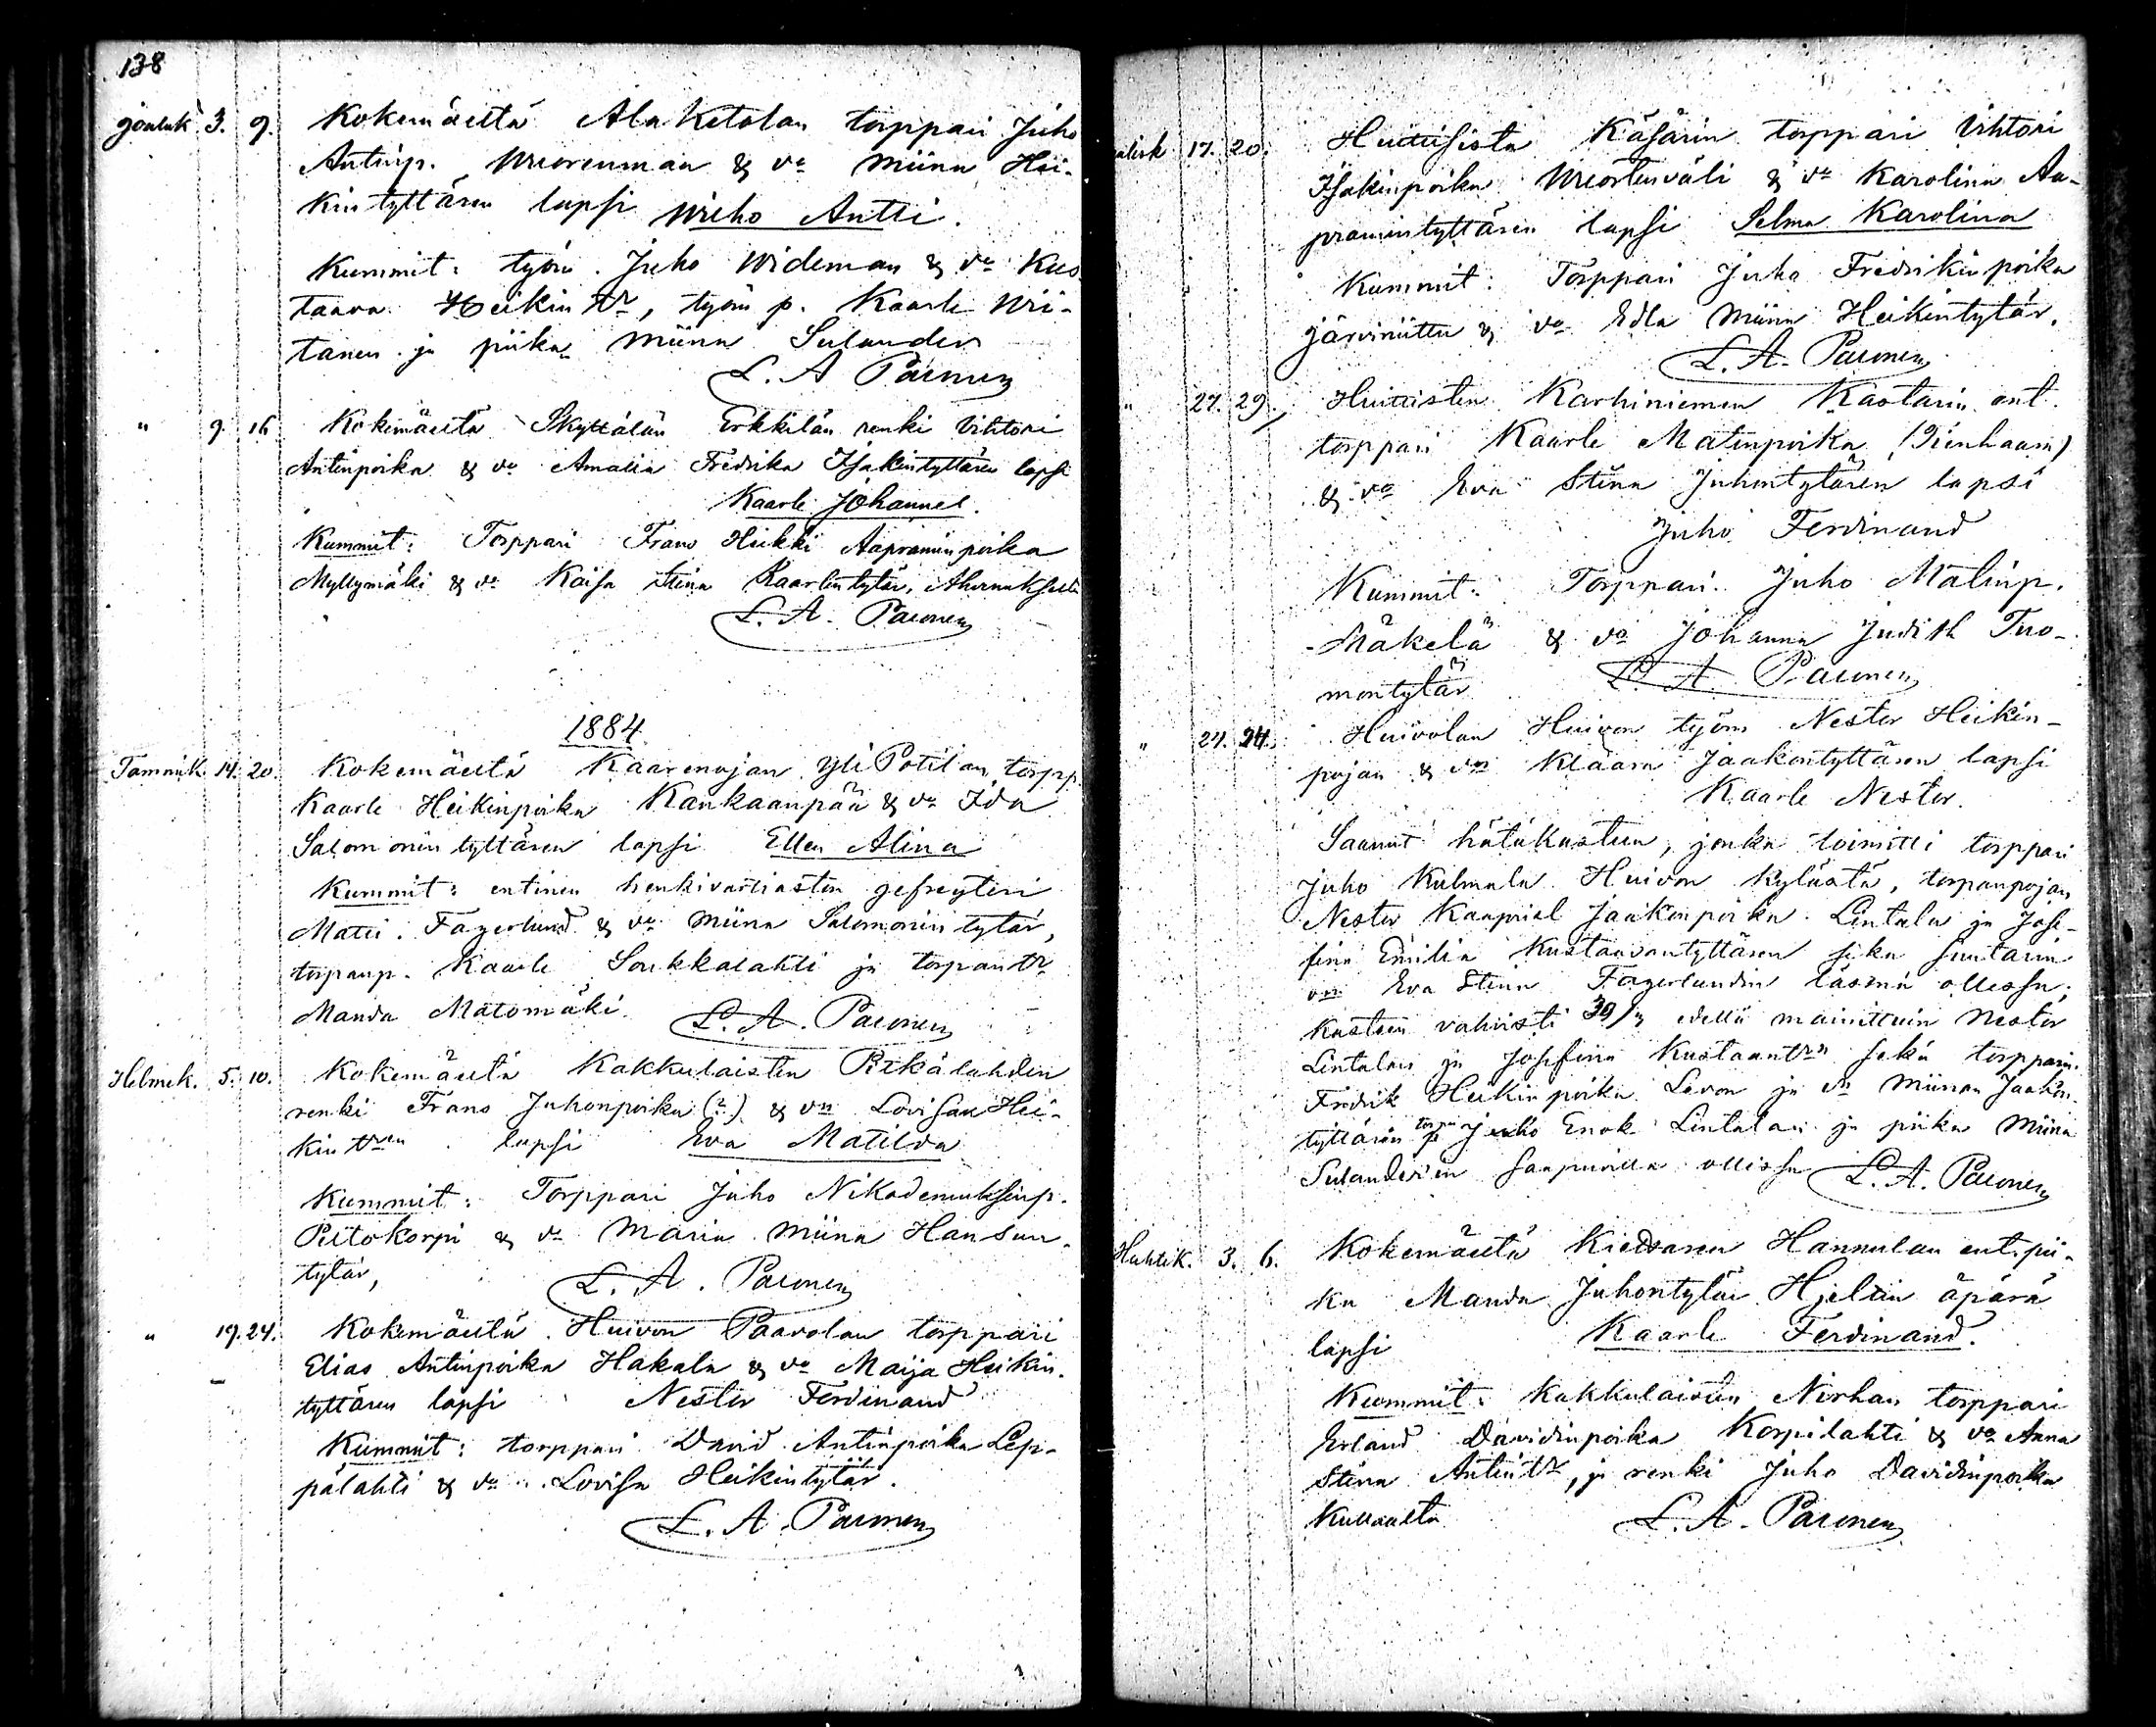 138
Jouluk. 3. 9. Kokemäeltä Ala Ketolan torppari Juho
Antinp. Wuorenmaa & va Miina Hei-
kintyttären lapsi Wilho Antti.
Kummit: työm. Juho Wideman & va Kus-
taava Heikintr, työm p. Kaarle Wii-
tanen ja piika Miina Sulander
L. A Paconen
" 9. 16 Kokemäeltä Skyttälän Erkkilän renki Vihtori
Antinpoika & va Amalia Fredrika Isakintyttären lapsi
Kaarle Johannes.
Kummit: Torppari Frans Heikki Aapraminpoika
Myllymäki & va Kaisa Stina Kaarlentytär,
L. A. Paconen
1884.
Tammik. 14. 20. Kokemäeltä Kaarenojan Yli Potilan torpp.
Kaarle Heikinpoika Kankaanpää & va Ida
Salomonintyttären lapsi Ellen Alina
Kummit: entinen henkivartiaston gefreyteri
Matti Fagerlund & va Miina Salomonintytär,
torpanp. Kaarle Sonkkalahti ja torpantr
Manda Matomäki. L. A. Paconen
Helmik. 5. 10. Kokemäeltä Kakkulaisten Pitkälahden
renki Frans Juhonpoika (?) & van Lovisan Hei-
kintren lapsi Eva Matilda
Kummit: Torppari Juho Nikodemuksenp.
Piitokorpi & va Maria Miina Hansun-
tytär, L. A. Paconen
" 19. 24. Kokemäeltä Huivon Paavolan torppari
Elias Antinpoika Hakala & va Maija Heikin-
tyttären lapsi Nestor Ferdinand
Kummit: torppari David Antinpoika Lep-
pälahti & va Lovisa Heikintytär.
L. A. Paconen
17. 20. Huittisista Käsärin torppari Vihtori
Isakinpoika Wuortenväli & va Karolina Aa-
pramintyttären lapsi Selma Karolina
Kummit: Torppari Juha Fredrikinpoika
Järviniittu & va Edla Miina Heikintytär.
L. A. Paconen
" 27. 29. Huittisten Karhiniemen Kastarin ent.
torppari Kaarle Matinpoika (Tienhaara)
& va Eva Stina Juhontytären lapsi
Juho Ferdinand
Kummit: Torppari Juho Matinp.
Mäkelä & va Johanna Judith Tuo-
montytär L. A. Paconen
" 24. 24. Huivolan Huivon työm Nestor Heikin-
pojan & van Klaara Jaakontyttären lapsi
Kaarle Nestor.
Saanut hätäkasteen, jonka toimitti torppari
Juho Kulmala Huivon kylästä, torpanpojan
Nestor Kaapriel Jaakonpoika Lintala ja Jose-
fina Emilia Kustaavantyttären sekä suutarin
van Eva Stina Fagerlundin läsnä ollessa;
Kasteen vahvisti 30/3 edellä mainittuin Nestor
Lintalan ja Josefina Kustaantrn sekä torpparin
Fredrik Heikinpoika Levon ja vn Miinan Jaakon-
tyttären torpp Juho Enok Lintalan ja piika Miina
Sulanderin saapuvilla ollessa L. A. Paconen
Huhtik. 3. 6. Kokemäeltä Hannulan ent. pii-
ka Manda Juhontytär Hjeltin äpärä
lapsi Kaarle Ferdinand.
Kummit: Kakkulaisten Nirhan torppari
Erland Davidinpoika Korpilahti & va Anna
Stina Antintr, ja renki Juho Davidinpoika
Kullaalta L. A. Paconen